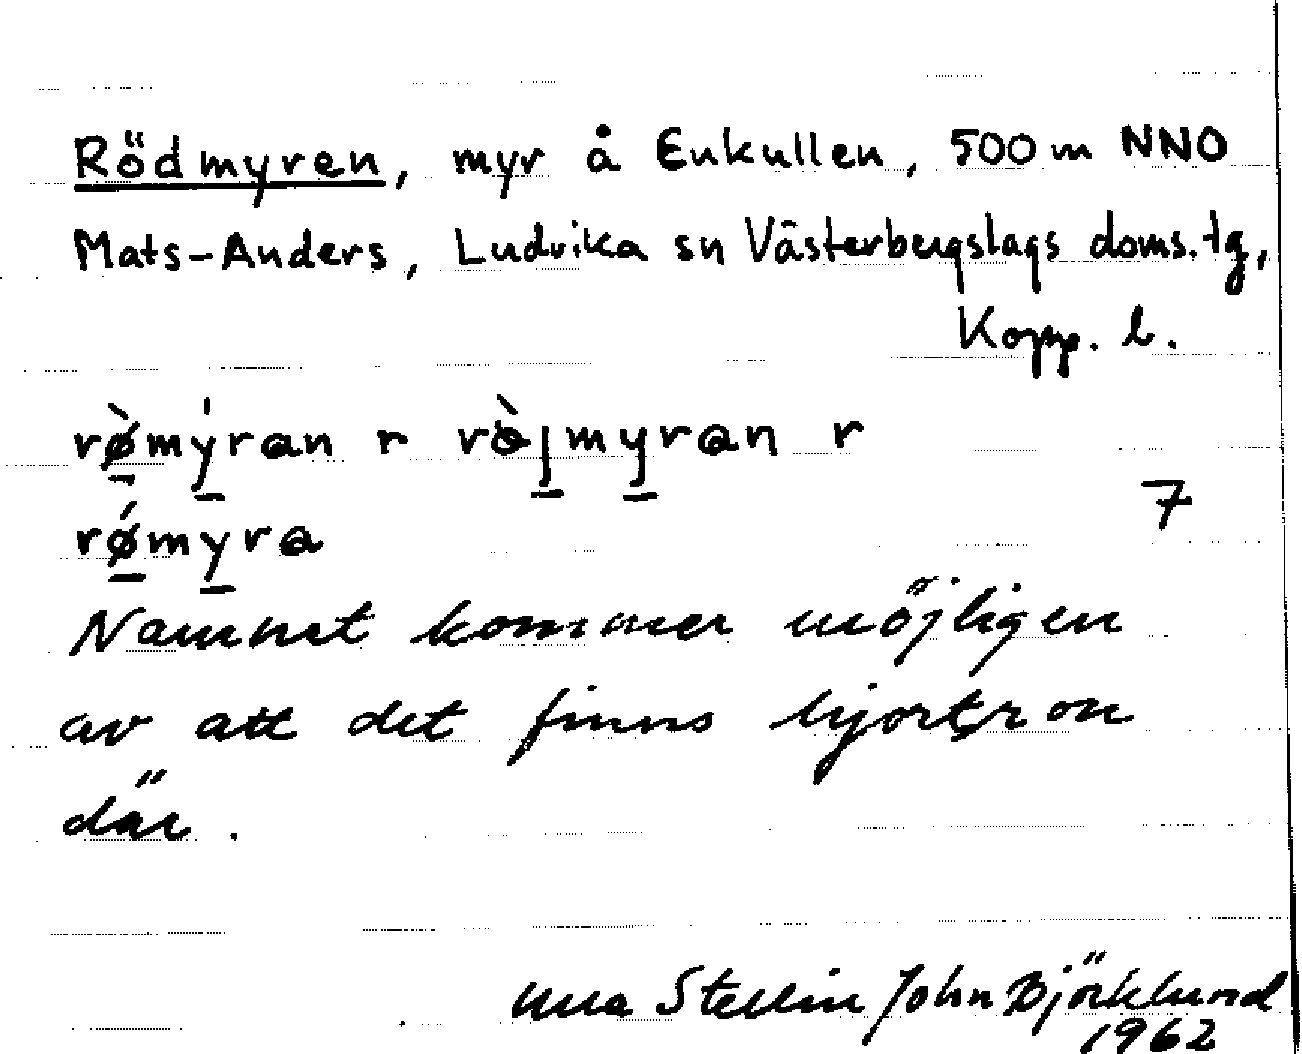 Rödmyren, myr å Enkullen, 500 m NNO
Mats-Anders, Ludvika sn Västerbergslags doms. tg,
Kopp. l.
rø̀mýran r rò̱jmyran r
7
rǿmyra
Namnet kommer möjligen
av att det finns hjortron
där.
Stellin John Björklund
1962